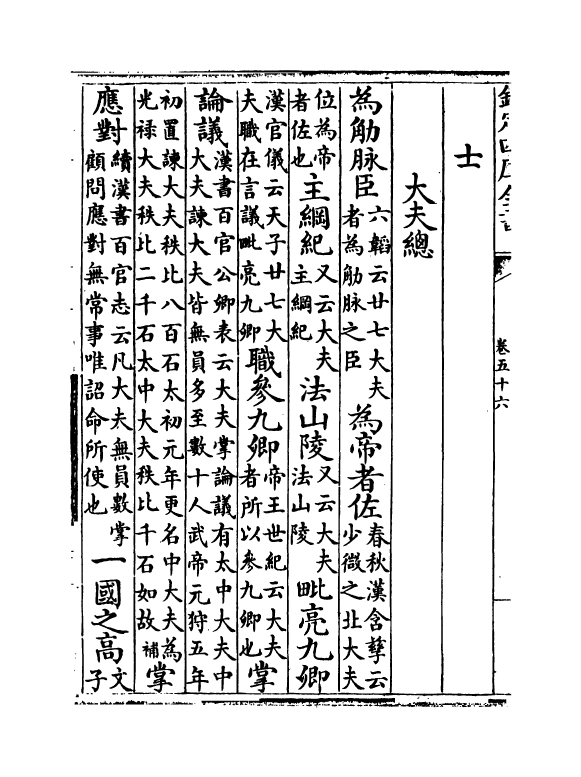 欽定四庫全書
卷五十六
士
大夫總
為肋脉臣六韜云廿七大夫者為肋脉之臣為帝者佐春秋漢含孳云少微之北大夫
位為帝者佐也主綱紀又云大夫主綱紀法山陵又云大夫法山陵毗亮九卿
漢官儀云天子廿七大夫職在言議毗亮九卿職參九卿帝王世紀云大夫者所以參九卿也掌
論議漢書百官公卿表云大夫掌論議有太中大夫中大夫諫大夫皆無員多至數十人武帝元狩五年
初置諫大夫秩比八百石太初元年更名中大夫為光禄大夫秩比二千石太中大夫秩比千石如故補掌
應對續漢書百官志云凡大夫無員數掌顧問應對無常事唯詔命所使也一國之高文子